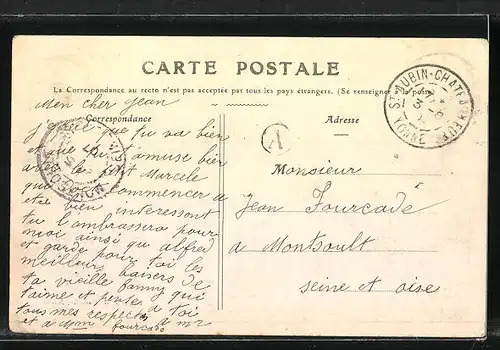 CARTE POSTALE
La Correspondance au recto n'est pas acceptée par tous les pays étrangers. (Se renseigner à la poste)
Correspondance
Adresse
Mon cher Jean
J'espère que tu va bien
et que tu t'amuse bien
avec le petit Marcele
qui doit commencer a
etre bien interessent
tu l'embrassera pour
moi ainsi que alfred
et garde pour toi les
meilleurs baisers de
ta vieille fanny qui
t'aime et pense a toi
tous mes respects a mr
et a Mme fourcade
V
ST AUBIN-CHATEAU-NEUF
YONNE
Monsieur
Jean Fourcade
a Montsoult
seine et oise